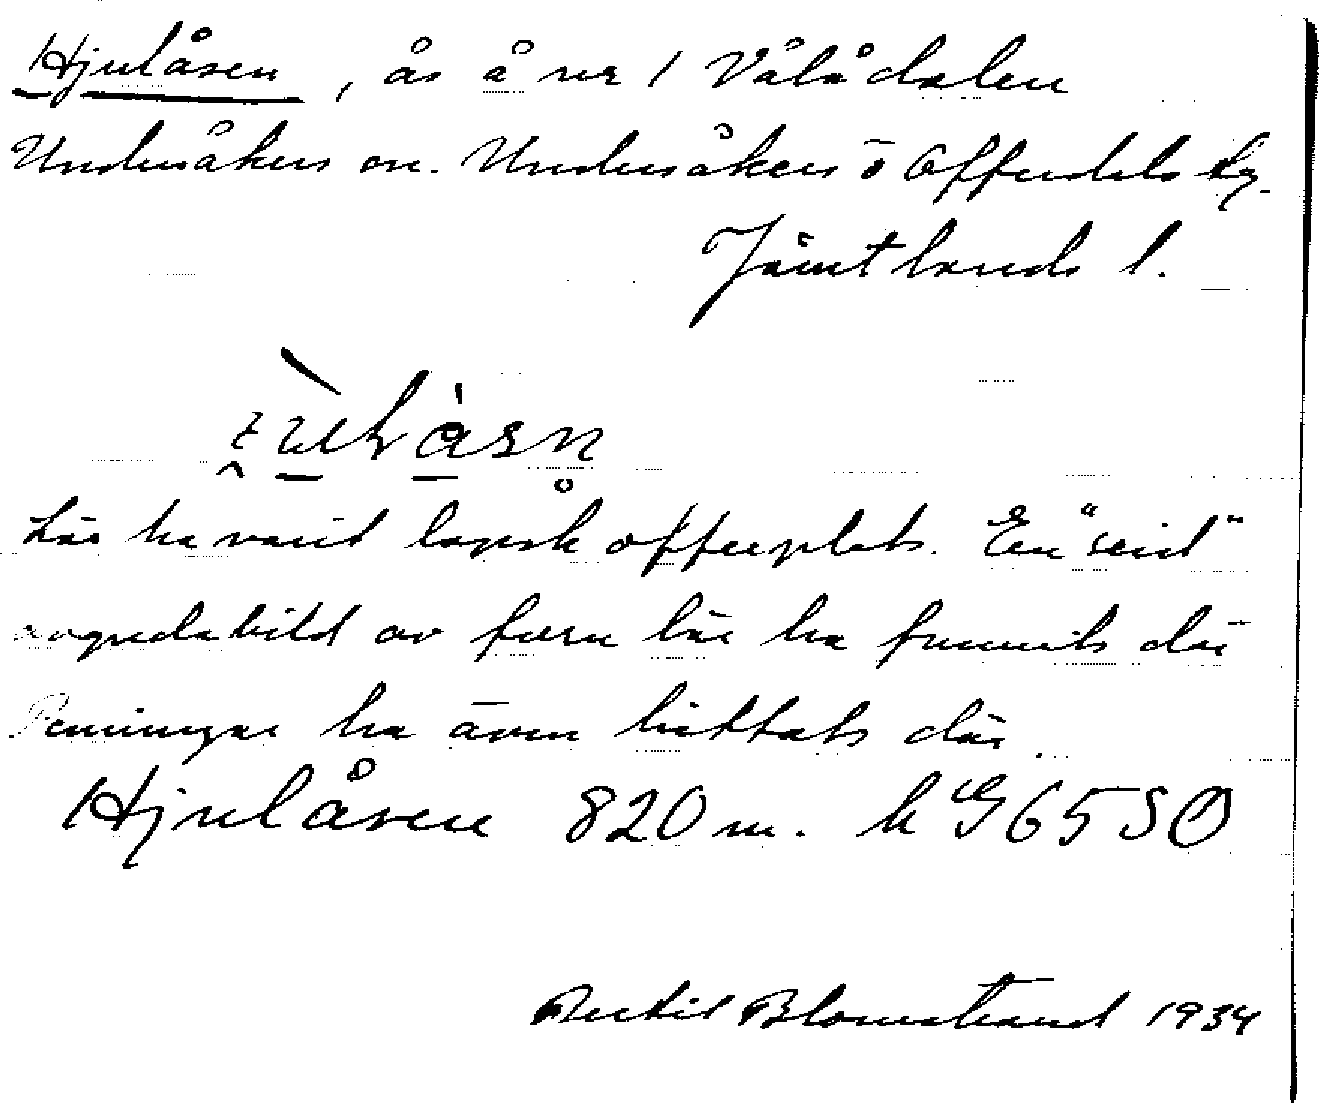 Hjulåsen, ås å nr 1 Vålådalen
Undersåkers sn. Undersåkers o Offerdals tg.
Jämtlands l.
Lär ha varit lapsk offerplats. En "seid"
avgudabild av furu lär ha funnits där
Penningar ha även hittats där.
Hjulåsen 820 m. h G65SO
Bertil Blomstrand 1934